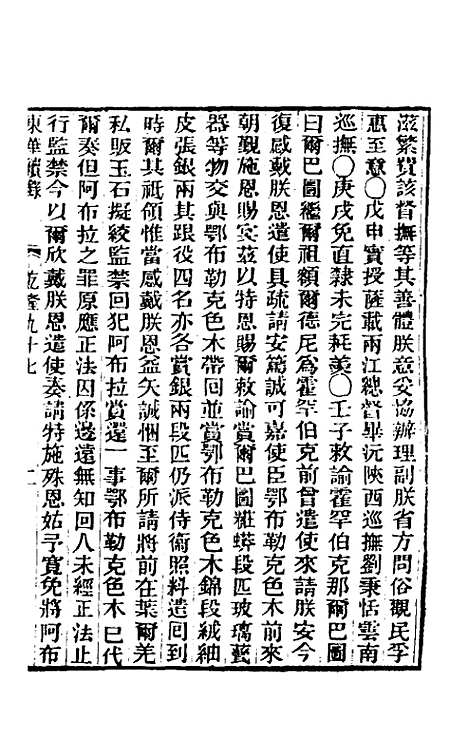 滋繁費該督撫等其善體朕意妥協辦理副朕省方問俗觀民孚
惠至意〇戊申實授薩載兩江總督畢沅陝西巡撫劉秉恬雲南
巡撫〇庚戌免直隸未完耗羨〇壬子敕諭霍罕伯克那爾巴圖
曰爾巴圖繼爾祖額爾德尼為霍罕伯克前曾遣使來請朕安今
復感戴朕恩遣使具疏請安篤誠可嘉使臣鄂布勒克色木前來
朝覲施恩賜宴茲以特恩賜爾敕諭賞爾巴圖粧蟒段匹玻璃甆
器等物交與鄂布勒克色木帶回並賞鄂布勒克色木錦段絨紬
皮張銀兩其跟役四名亦各賞銀兩段匹仍派侍衞照料遣囘到
時爾其祇領惟當感戴朕恩益矢誠悃至爾所請將前在葉爾羌
私販玉石擬絞監禁回犯阿布拉賞還一事鄂布勒克色木已代
爾奏但阿布拉之罪原應正法因係邊遠無知回人未經正法止
行監禁今以爾欣戴朕恩遣使奏請特施殊恩姑予寬免將阿布
東華續錄 乾隆九十七